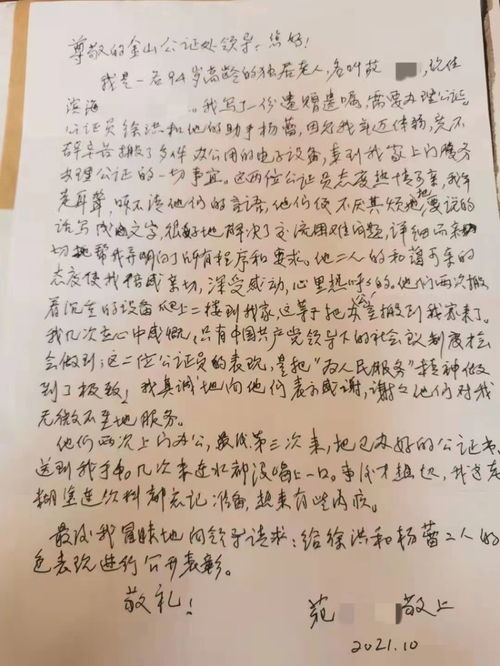 尊敬的金山公证处领导：您好！
我是一名94岁高龄的独居老人，名叫范 ，现住
滨海 。我写了一份遗赠遗嘱，需要办理公证。
公证员徐洪和他的助手杨蕾，因我年迈体弱，竟不
辞辛苦搬了多件办公用的电子设备，来到我家上门服务
办理公证的一切事宜。这两位公证员态度热情可亲，我年
老耳聋，听不清他们的言语，他们便不厌其烦地把要说的
话写成文字，很好地解决了交流困难问题，详细而亲
切地帮我弄明白了所有程序和要求。他二人的和蔼可亲的
态度使我倍感亲切，深受感动，心里热呼呼的。他们两次搬
着沉重的设备爬上二楼到我家，这等于把办公室搬到我家来了。
我几次在心中感慨，只有中国共产党领导下的社会主义制度才
会做到这二位公证员的表现，是把“为人民服务”精神做
到了极致！我真诚地向他们表示感谢，谢谢他们对我
无微不至地服务。
他们两次上门办公，最后第三次来，把已办好的公证书
送到我手中。几次来连水都没喝上一口。事后才想起，我老
糊涂连饮料都忘记准备，想来有些内疚。
最后我冒昧地向领导请求：给徐洪和杨蕾二人的
色表现进行公开表彰。
敬礼！
范 敬上
2021.10